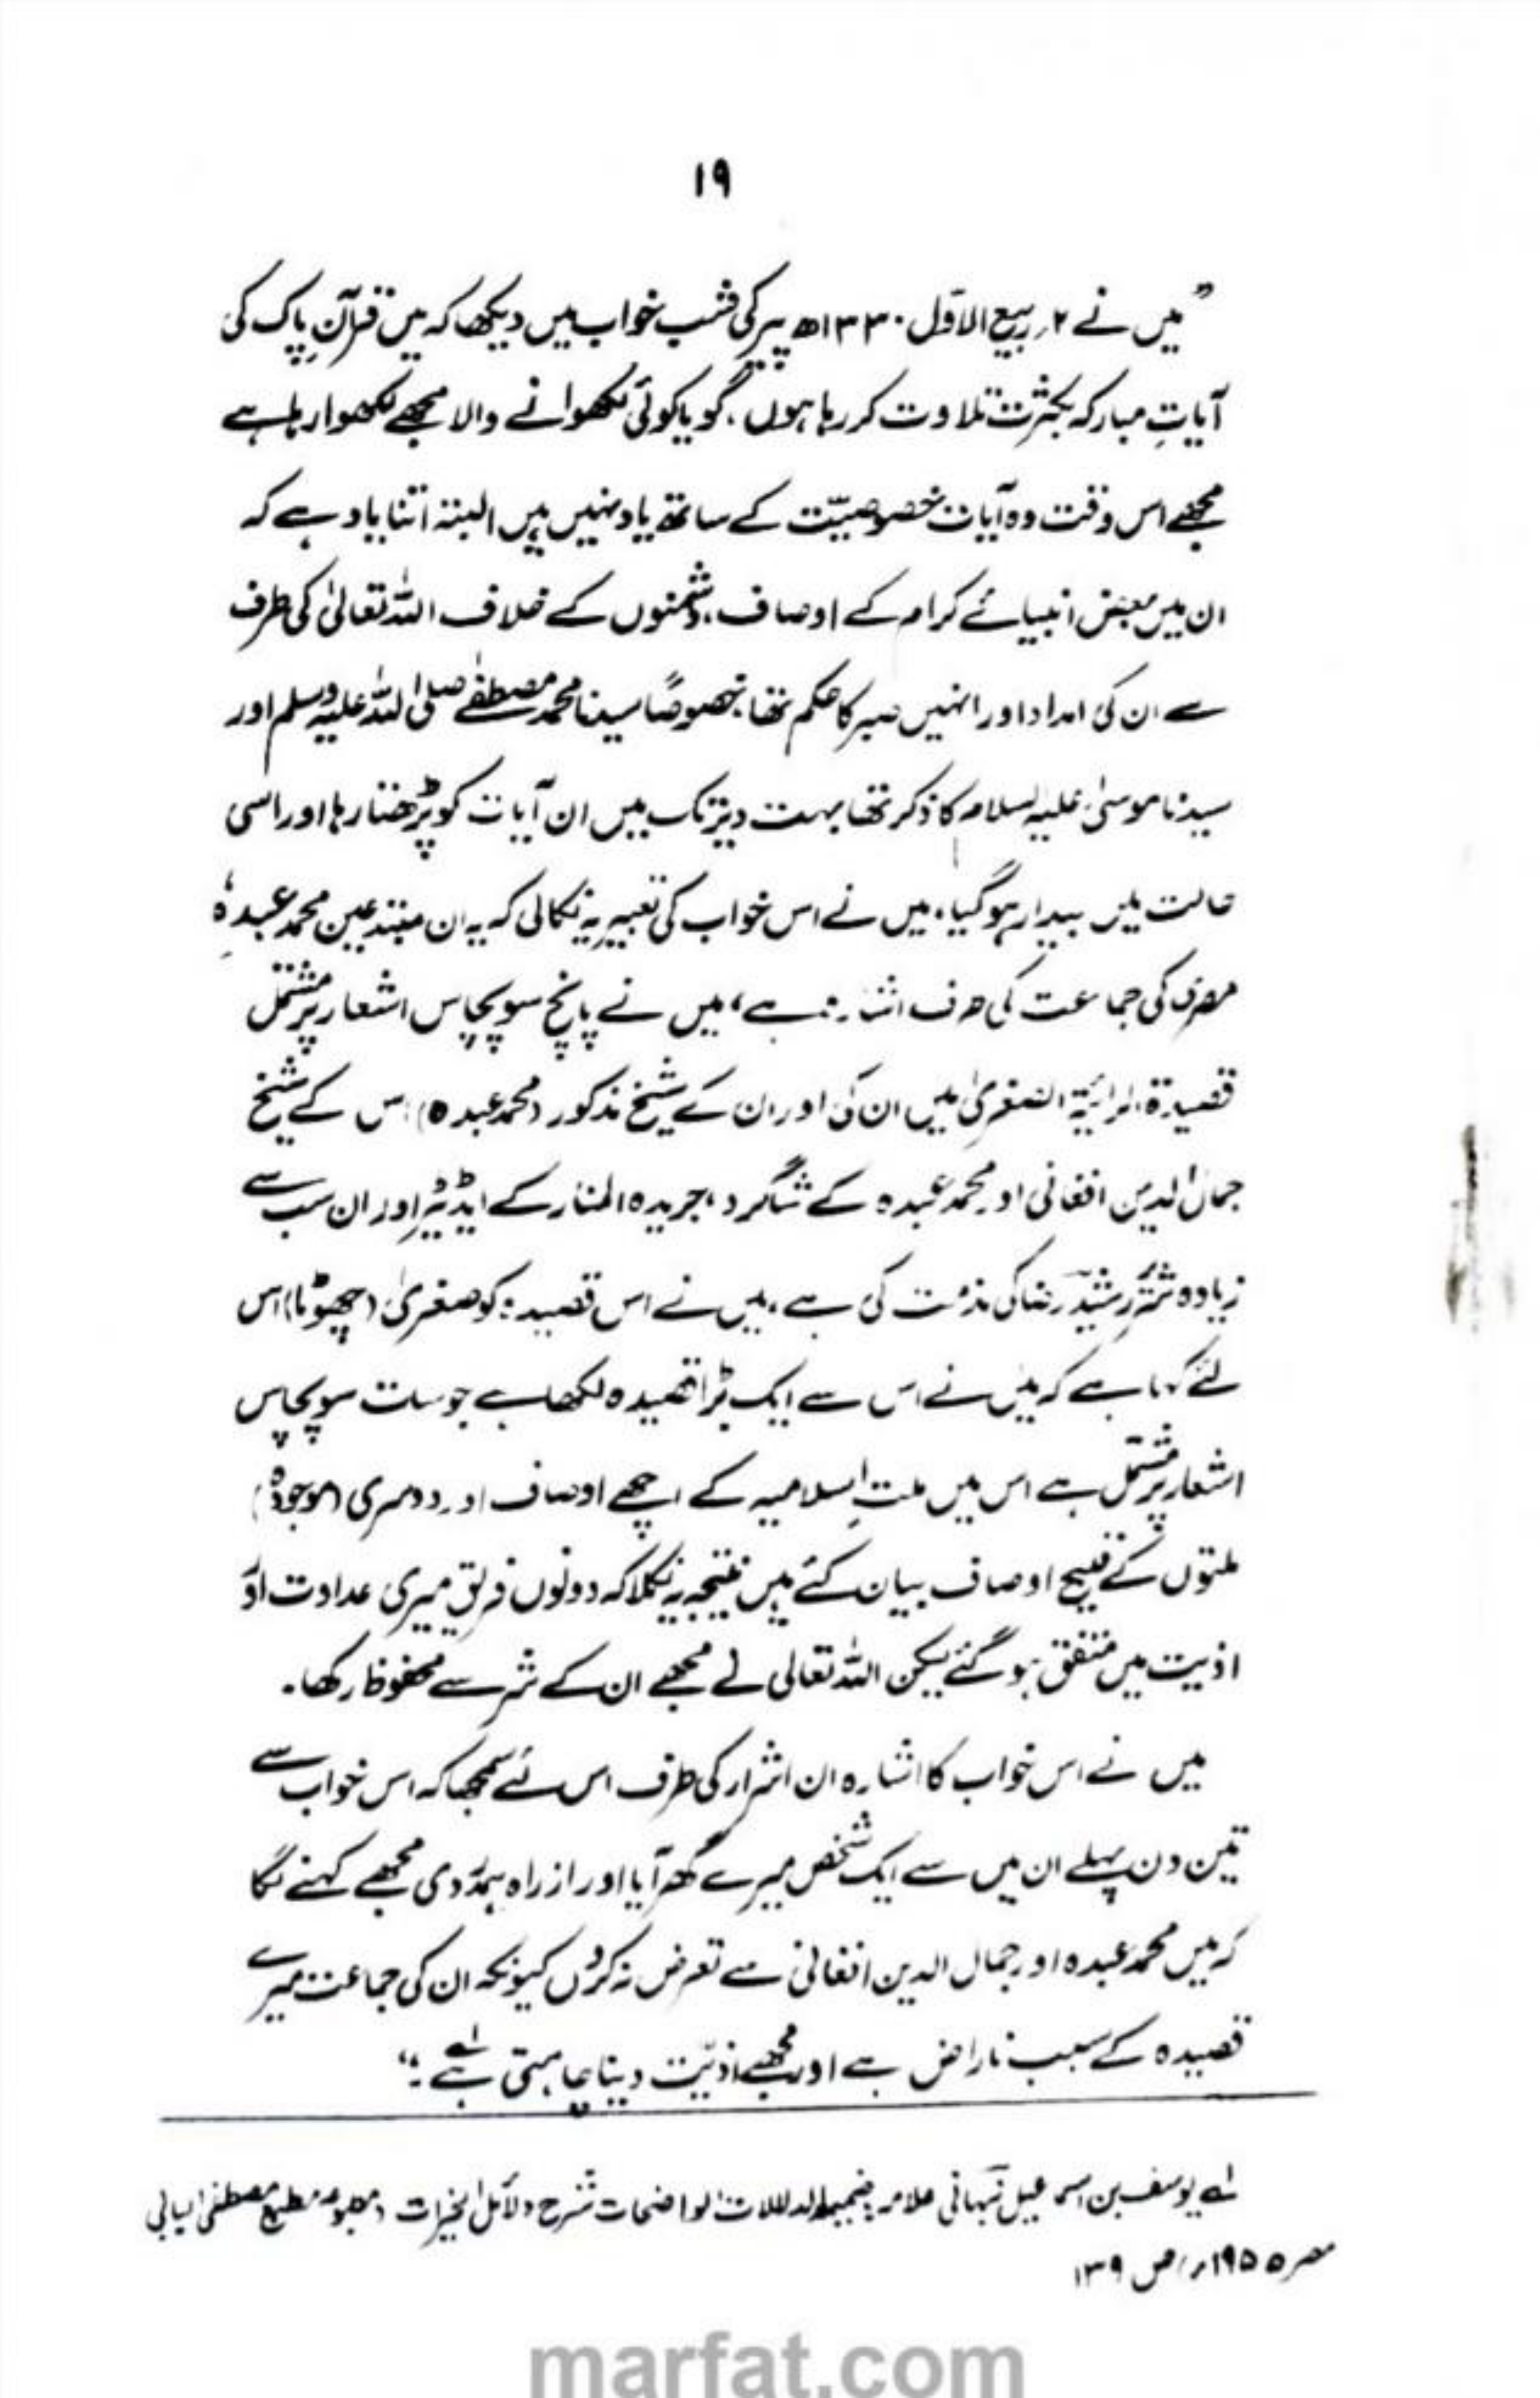 ۱۹
”میں نے ۲ ربیع الاوّل ۱۳۳۰ھ پیر کی شب خواب میں دیکھا کہ میں قرآنِ پاک کی
آیاتِ مبارکہ بکثرت تلاوت کر رہا ہوں، گویا کوئی لکھوانے والا مجھے لکھوا رہا ہے
مجھے اس وقت وہ آیات خصوصیّت کے ساتھ یاد نہیں ہیں البتہ اتنا یاد ہے کہ
ان میں بعض انبیائے کرام کے اوصاف، دشمنوں کے خلاف اللہ تعالیٰ کی طرف
سے ان کی امداد اور انہیں صبر کا حکم تھا، خصوصًا سیدنا محمد مصطفےٰ صلی اللہ علیہ وسلم اور
سیدنا موسیٰ علیہ السلام کا ذکر تھا بہت دیر تک میں ان آیات کو پڑھتا رہا اور اسی
حالت میں بیدار ہو گیا، میں نے اس خواب کی تعبیر یہ نکالی کہ یہ ان مبتدعین محمد عبدہٗ
مصری کی جماعت کی طرف اشارہ ہے، میں نے پانچ سو پچاس اشعار پر مشتمل
قصیدۃ الرائیۃ الصغریٰ میں ان کی اور ان کے شیخ مذکور (محمد عبدہ) اس کے شیخ
جمال الدین افغانی اور محمد عبدہ کے شاگرد، جریدہ المنار کے ایڈیٹر اور ان سب سے
زیادہ شَرّ رشید رضا کی مذمت کی ہے، میں نے اس قصیدہ کو صغریٰ (چھوٹا) اس
لئے کہا ہے کہ میں نے اس سے ایک بڑا قصیدہ لکھا ہے جو سات سو پچاس
اشعار پر مشتمل ہے اس میں ملتِ اسلامیہ کے اچھے اوصاف اور دوسری (موجودہ)
ملتوں کے قبیح اوصاف بیان کئے ہیں نتیجہ یہ نکلا کہ دونوں فریق میری عداوت اور
اذیت میں متفق ہو گئے لیکن اللہ تعالی نے مجھے ان کے شر سے محفوظ رکھا۔
میں نے اس خواب کا اشارہ ان اشرار کی طرف اس لئے سمجھا کہ اس خواب سے
تین دن پہلے ان میں سے ایک شخص میرے گھر آیا اور از راہ ہمدردی مجھے کہنے لگا
کہ میں محمد عبدہ اور جمال الدین افغانی سے تعرض نہ کروں کیونکہ ان کی جماعت میرے
قصیدہ کے سبب ناراض ہے اور مجھے اذیّت دینا چاہتی ہے لہ“
لہ یوسف بن اسمٰعیل نبہانی علامہ: ضمیمہ الدلالات الواضحات شرح دلائل الخیرات (مطبوعہ مطبع مصطفی البابی
مصر ۱۹۵۵ء) ص ۱۳۹
marfat.com